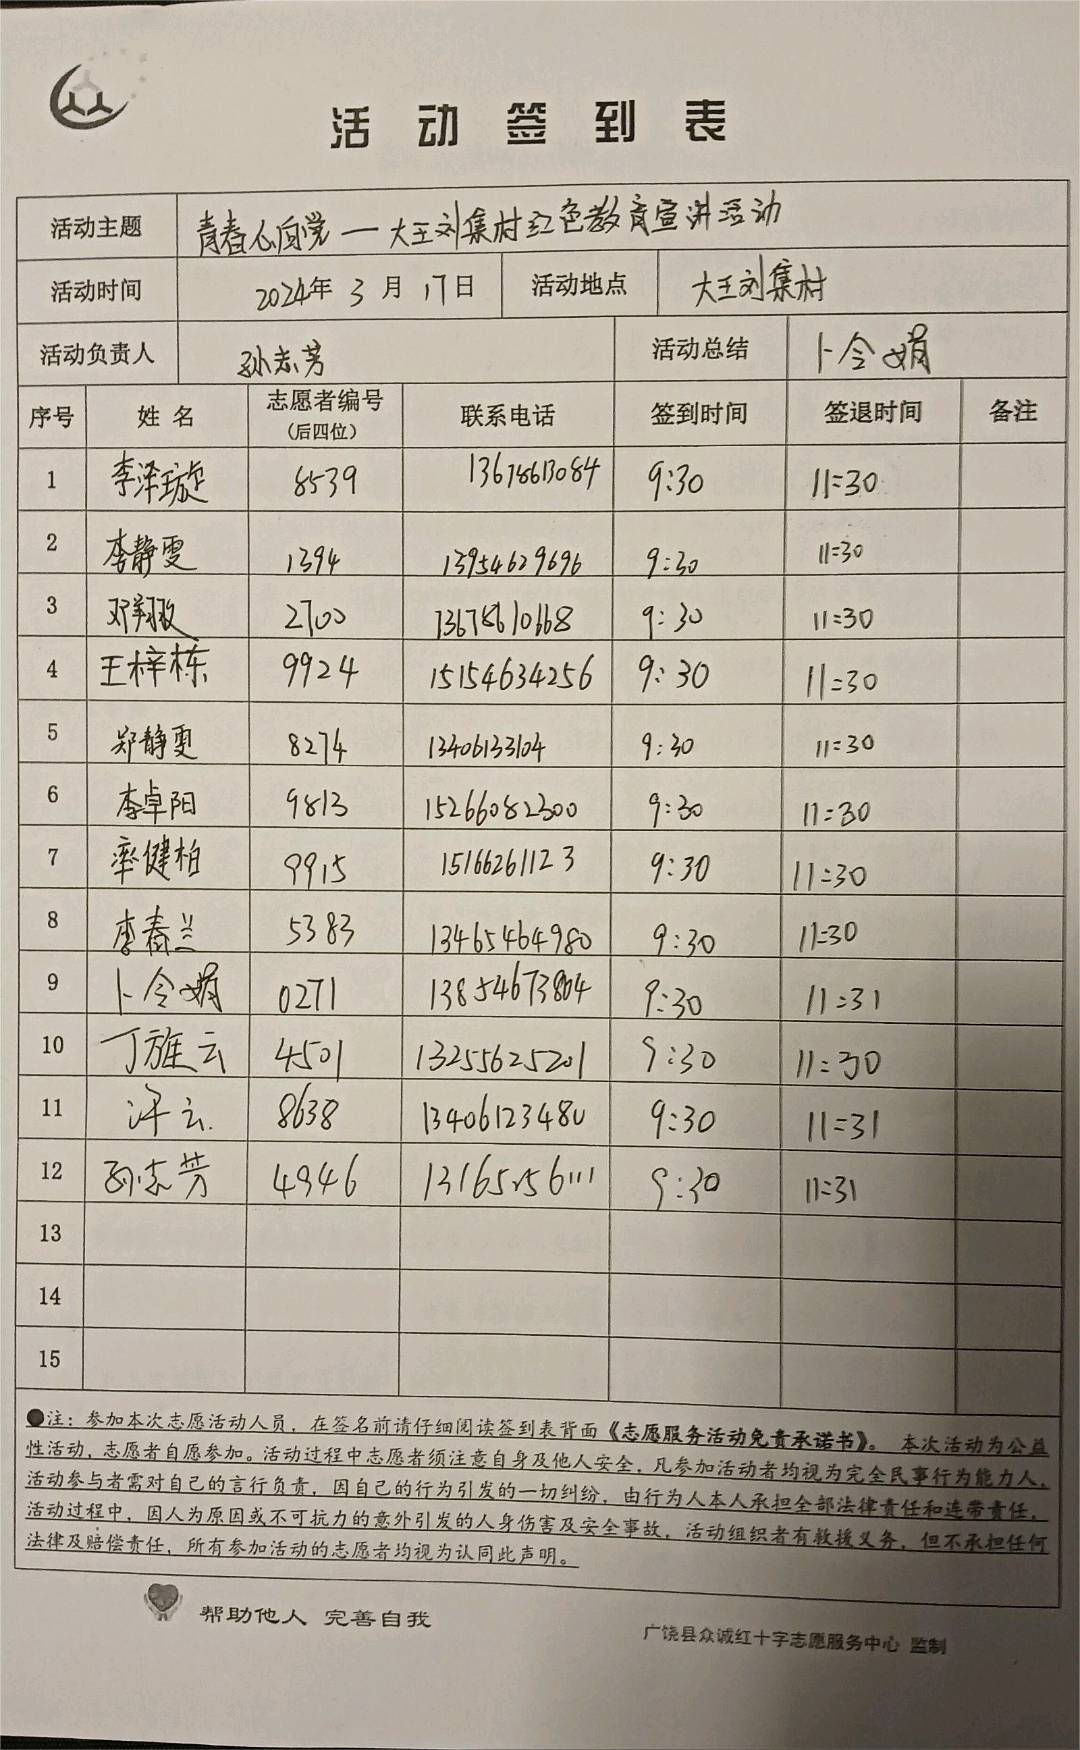 活动签到表
活动主题 青春心向党—大王刘集村红色教育宣讲活动
活动时间 2024年 3 月 17日 活动地点 大王刘集村
活动负责人 孙志芳 活动总结 卜令娟
序号 姓名 志愿者编号(后四位) 联系电话 签到时间 签退时间 备注
1 李泽璇 8539 13678613084 9:30 11:30
2 李静雯 1394 13954629696 9:30 11:30
3 邓翔玫 2700 13678610668 9:30 11:30
4 王梓栋 9924 15154634256 9:30 11:30
5 郑静雯 8274 13406133104 9:30 11:30
6 李卓阳 9813 15266082300 9:30 11:30
7 率健柏 9915 15166261123 9:30 11:30
8 李春兰 5383 13465464980 9:30 11:30
9 卜令娟 0271 13854673804 9:30 11:31
10 丁旌云 4501 13255625201 9:30 11:30
11 云 8638 13406123480 9:30 11:31
12 孙志芳 4946 13165256111 9:30 11:31
13
14
15
●注：参加本次志愿活动人员，在签名前请仔细阅读签到表背面《志愿服务活动免责承诺书》。 本次活动为公益
性活动，志愿者自愿参加。活动过程中志愿者须注意自身及他人安全，凡参加活动者均视为完全民事行为能力人，
活动参与者需对自己的言行负责，因自己的行为引发的一切纠纷，由行为人本人承担全部法律责任和连带责任，
活动过程中，因人为原因或不可抗力的意外引发的人身伤害及安全事故，活动组织者有救援义务，但不承担任何
法律及赔偿责任，所有参加活动的志愿者均视为认同此声明。
帮助他人 完善自我
广饶县众诚红十字志愿服务中心 监制